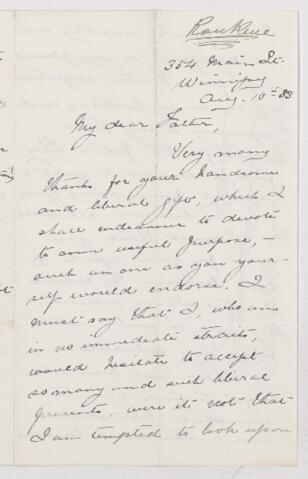 354 Main St.
Winnipeg
Aug. 10th 83
My dear Father,
Very many
thanks for your handsome
and liberal gift, which I
shall endeavour to devote
to some useful purpose, –
such an one as you your-
self would endorse. I
must say that I, who am
in no immediate straits,
would hesitate to accept
so many and such liberal
presents, were it not that
I am tempted to look upon